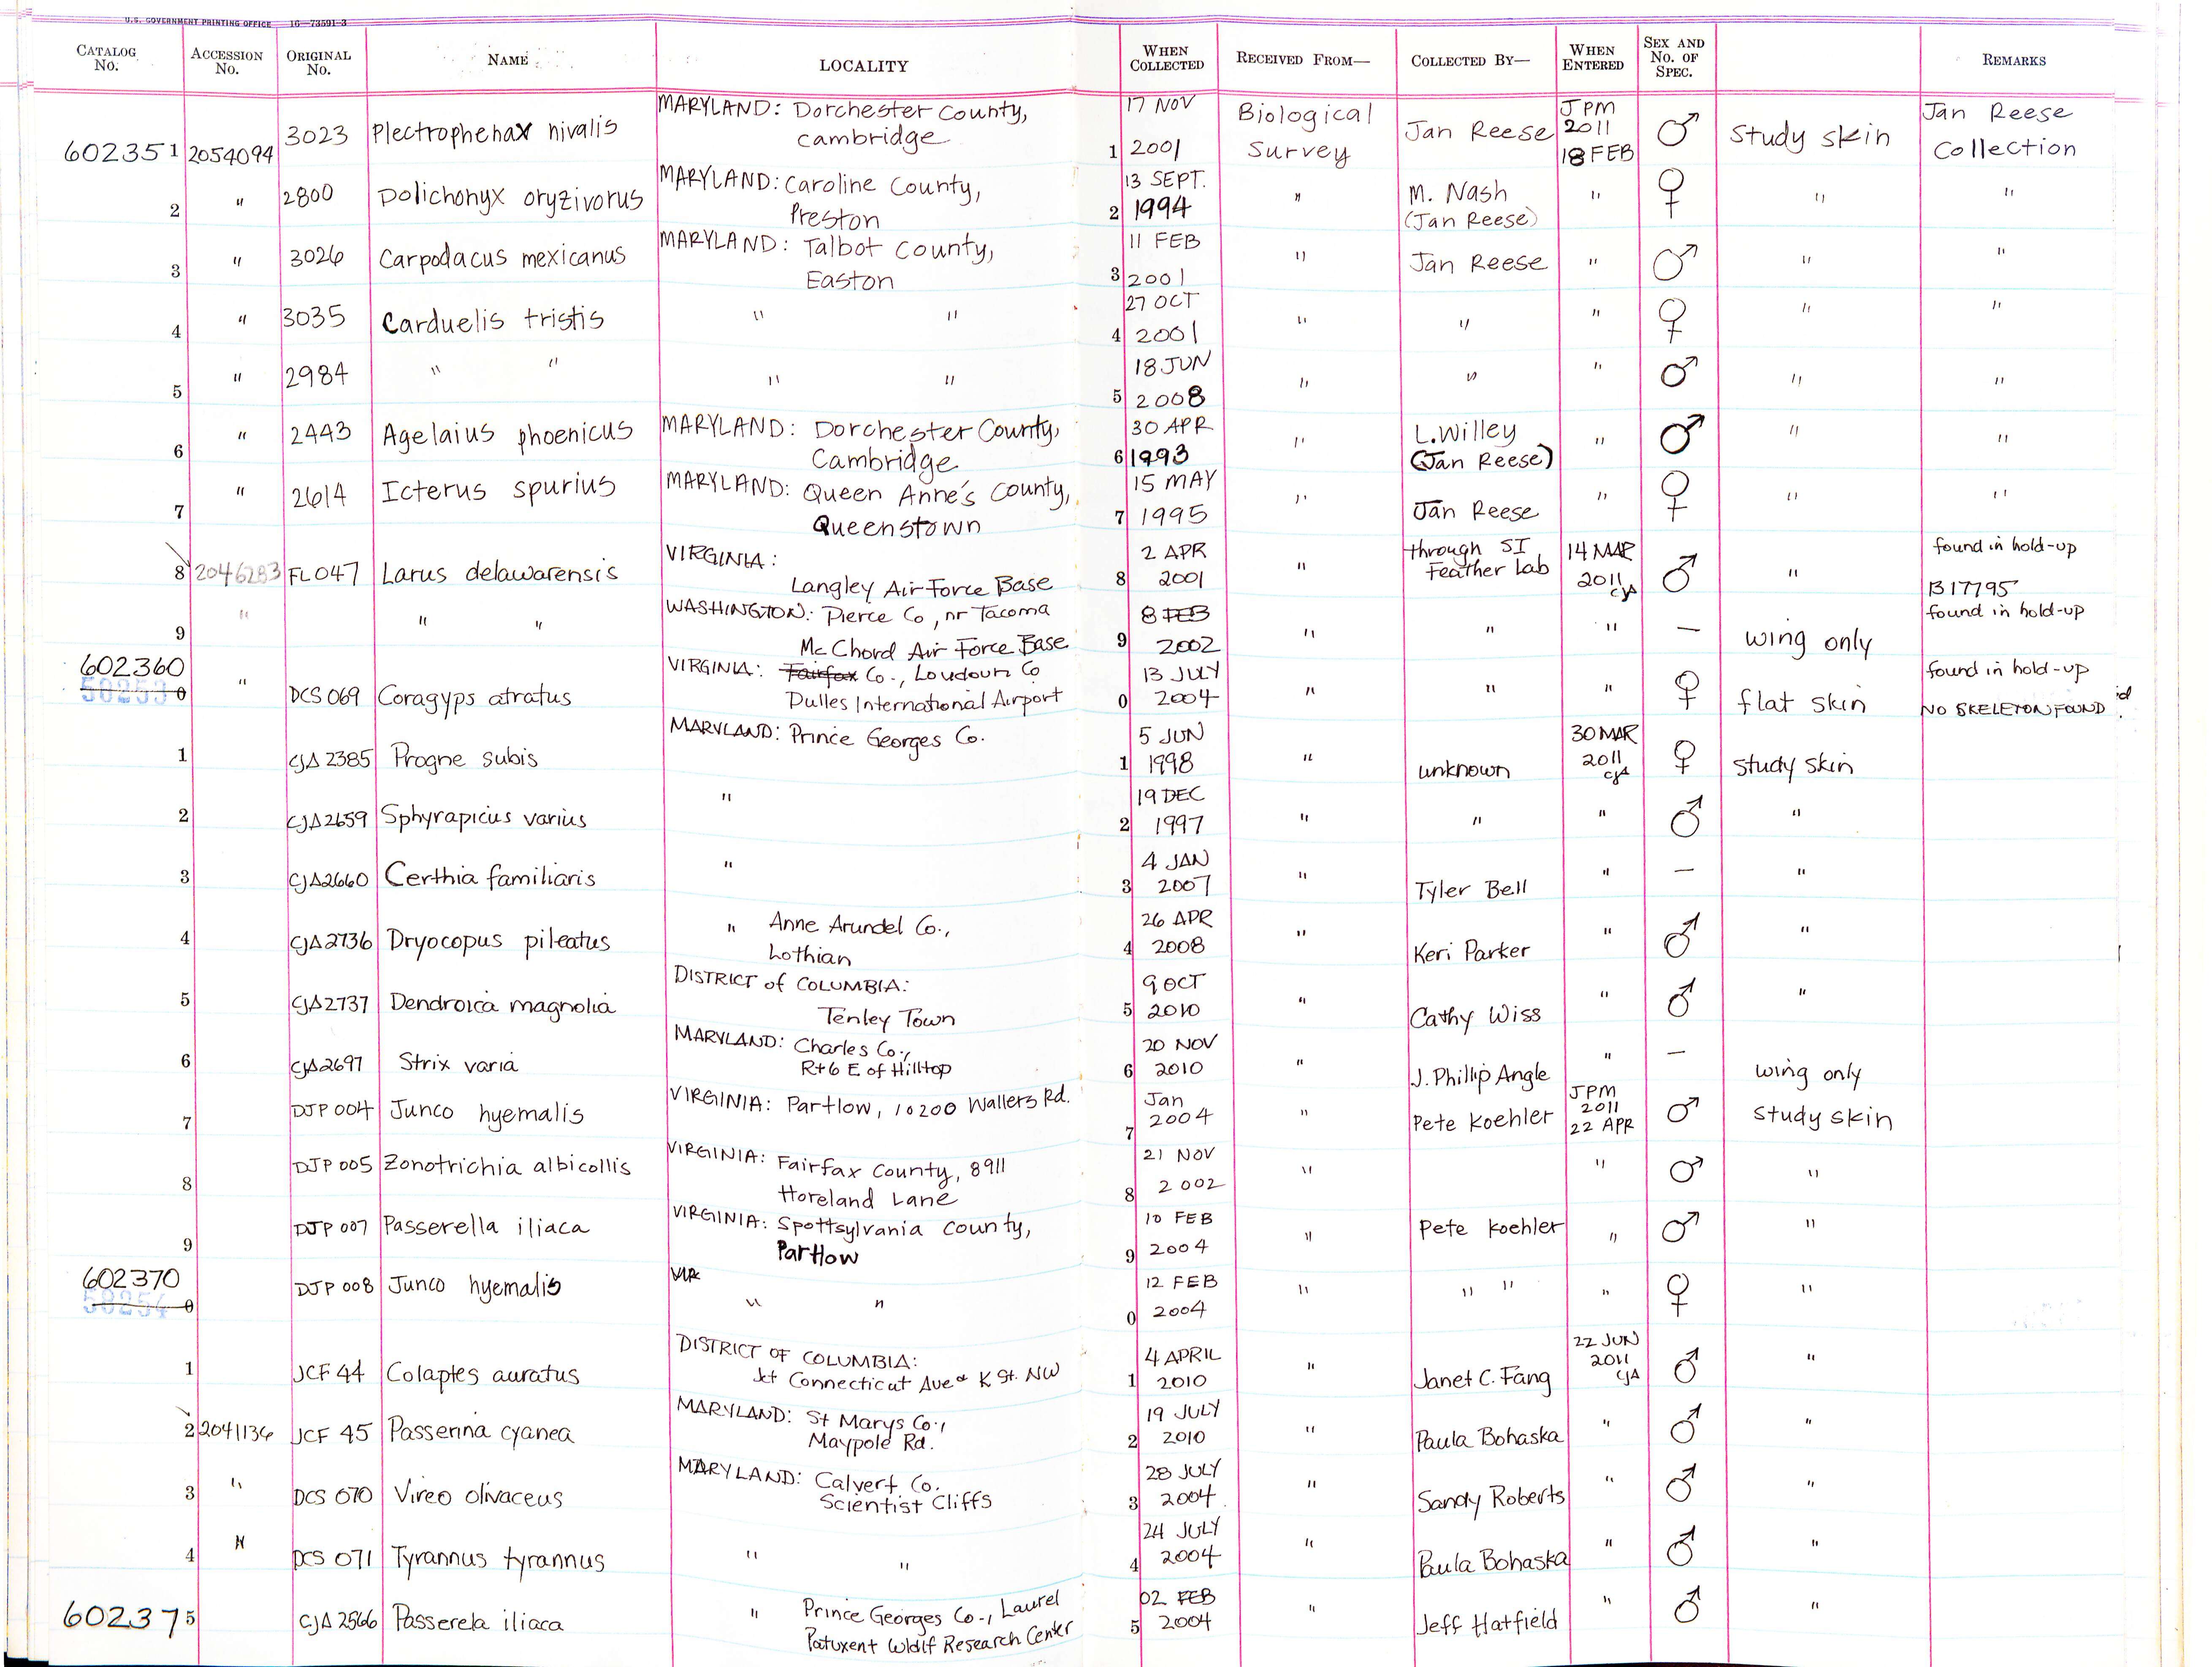 U.S. GOVERNMENT PRINTING OFFICE 16—73591-3
CATALOG No. ACCESSION No. ORIGINAL No. NAME LOCALITY WHEN COLLECTED RECEIVED FROM— COLLECTED BY— WHEN ENTERED SEX AND No. OF SPEC. REMARKS
602351 2054094 3023 Plectrophenax nivalis MARYLAND: Dorchester County, Cambridge 1 17 NOV 2001 Biological Survey Jan Reese JPM 2011 18 FEB ♂ Study skin Jan Reese Collection
2 " 2800 Dolichonyx oryzivorus MARYLAND: Caroline County, Preston 2 13 SEPT. 1994 " M. Nash (Jan Reese) " ♀ " "
3 " 3026 Carpodacus mexicanus MARYLAND: Talbot County, Easton 3 11 FEB 2001 " Jan Reese " ♂ " "
4 " 3035 Carduelis tristis " " 4 27 OCT 2001 " " " ♀ " "
5 " 2984 " " " " 5 18 JUN 2008 " " " ♂ " "
6 " 2443 Agelaius phoenicus MARYLAND: Dorchester County, Cambridge 6 30 APR 1993 " L. Willey (Jan Reese) " ♂ " "
7 " 2614 Icterus spurius MARYLAND: Queen Anne's County, Queenstown 7 15 MAY 1995 " Jan Reese " ♀ " "
8 2046283 FL047 Larus delawarensis VIRGINIA: Langley Air Force Base 8 2 APR 2001 " through SI Feather Lab 14 MAR 2011 CJA ♂ " found in hold-up B17795
9 " " " WASHINGTON: Pierce Co, nr Tacoma McChord Air Force Base 9 8 FEB 2002 " " " — wing only found in hold-up
602360 50253 0 " DCS 069 Coragyps atratus VIRGINIA: Fairfax Co., Loudoun Co Dulles International Airport 0 13 JULY 2004 " " " ♀ flat skin found in hold-up NO SKELETON FOUND
1 CJA 2385 Progne subis MARYLAND: Prince Georges Co. 1 5 JUN 1998 " unknown 30 MAR 2011 CJA ♀ study skin
2 CJA 2659 Sphyrapicus varius " 2 19 DEC 1997 " " " ♂ "
3 CJA 2660 Certhia familiaris " 3 4 JAN 2007 " Tyler Bell " — "
4 CJA 2736 Dryocopus pileatus " Anne Arundel Co., Lothian 4 26 APR 2008 " Keri Parker " ♂ "
5 CJA 2737 Dendroica magnolia DISTRICT of COLUMBIA: Tenley Town 5 9 OCT 2010 " Cathy Wiss " ♂ "
6 CJA 2697 Strix varia MARYLAND: Charles Co., Rt 6 E of Hilltop 6 20 NOV 2010 " J. Phillip Angle " — wing only
7 DJP 004 Junco hyemalis VIRGINIA: Partlow, 10200 Wallers Rd. 7 Jan 2004 " Pete Koehler JPM 2011 22 APR ♂ Study skin
8 DJP 005 Zonotrichia albicollis VIRGINIA: Fairfax County, 8911 Horeland Lane 8 21 NOV 2002 " " ♂ "
9 DJP 007 Passerella iliaca VIRGINIA: Spottsylvania County, Partlow 9 10 FEB 2004 " Pete Koehler " ♂ "
602370 50254 0 DJP 008 Junco hyemalis VIR " " 0 12 FEB 2004 " " " " ♀ "
1 JCF 44 Colaptes auratus DISTRICT OF COLUMBIA: Jct Connecticut Ave & K St. NW 1 4 APRIL 2010 " Janet C. Fang 22 JUN 2011 CJA ♂ "
2 2041136 JCF 45 Passerina cyanea MARYLAND: St Marys Co., Maypole Rd. 2 19 JULY 2010 " Paula Bohaska " ♂ "
3 " DCS 070 Vireo olivaceus MARYLAND: Calvert Co. Scientist Cliffs 3 28 JULY 2004 " Sandy Roberts " ♂ "
4 " DCS 071 Tyrannus tyrannus " " 4 24 JULY 2004 " Paula Bohaska " ♂ "
602375 CJA 2566 Passerela iliaca " Prince Georges Co., Laurel Patuxent Wldlf Research Center 5 02 FEB 2004 " Jeff Hatfield " ♂ "